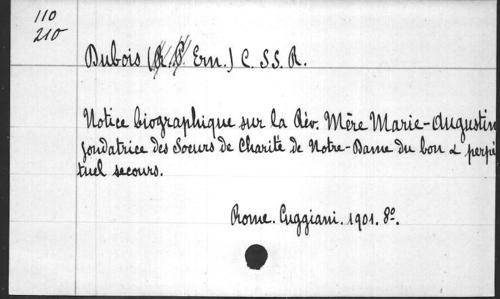 110
210
Dubois (R. P. Ern.) C. SS. R.
Notice biographique sur la Rév. Mère Marie-Augustin
fondatrice des Soeurs de Charité de Notre-Dame du bon & perpé
tuel secours.
Rome. Cuggiani. 1901. 8º.